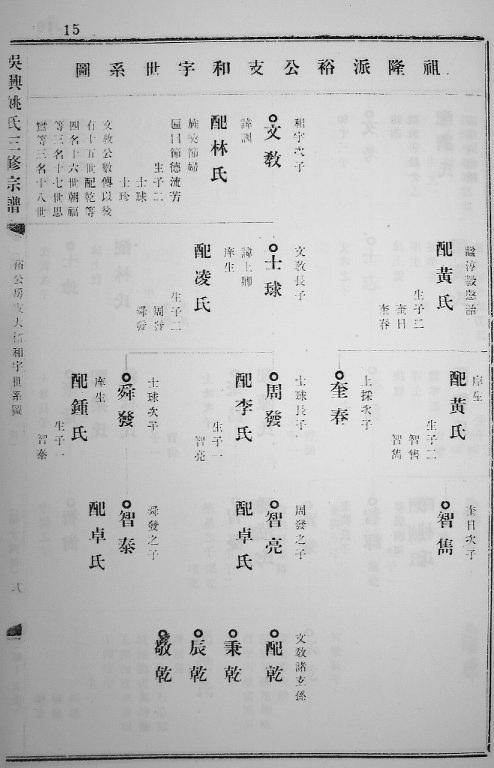 15
祖隆派裕公支和宇世系圖
吳興姚氏三修宗譜
配黃氏
生子二
奎日
奎春
和宇次子
文敎
諱訓
配林氏
旌奬節婦
匾曰節德流芳
生子二
士球
士珍
文敎公數傳以後
有十五世配乾等
四名十六世朝福
等三名十七世思
等三名十八世
文敎長子
士球
諱上卿
庠生
配凌氏
生子二
周發
舜發
庠生
配黃氏
生子二
智售
智雋
奎春
士球長子
周發
配李氏
生子一
智亮
士球次子
舜發
庠生
配鍾氏
生子一
智泰
奎日次子
智雋
周發之子
智亮
配卓氏
舜發之子
智泰
配卓氏
文敎諸玄孫
配乾
秉乾
辰乾
敬乾